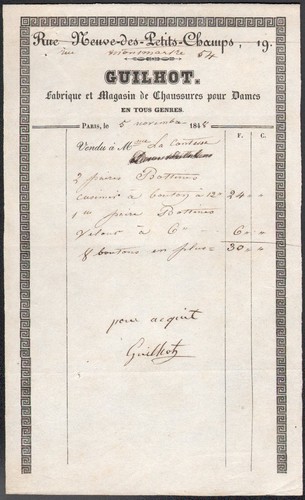 Rue Neuve-des-Petits-Champs, 19.
rue Montmartre 54
GUILHOT.
Fabrique et Magasin de Chaussures pour Dames
EN TOUS GENRES.
PARIS, le 5 novembre 1848
Vendu à Mme La Comtesse
F. C.
2 paires Bottines
à bouton à 12 24 " "
1 paire Bottines
à 6 " 6 " "
8 boutons en plus 30 " "
pour acquit
Guilhot